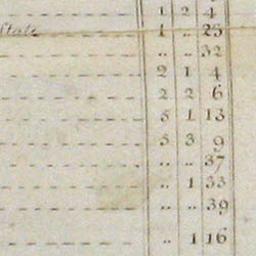 1 2 4
State 1 .. 25
.. .. 32
2 1 4
2 2 6
5 1 13
5 3 9
.. .. 37
.. 1 33
.. .. 39
.. 1 16